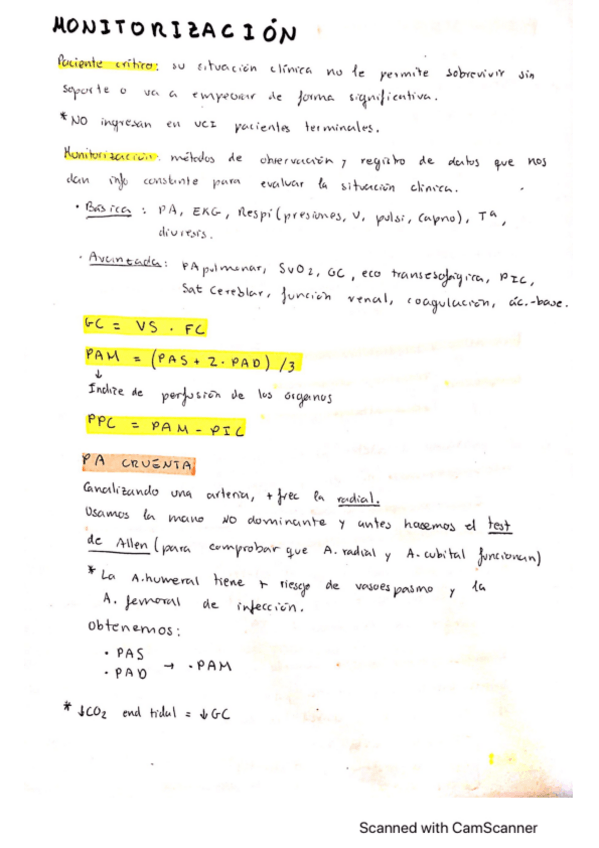 MONITORIZACIÓN
Paciente crítico: su situación clínica no le permite sobrevivir sin
soporte o va a empeorar de forma significativa.
*NO ingresan en UCI pacientes terminales.
Monitorización: métodos de observación y registro de datos que nos
dan info constante para evaluar la situación clínica.
· Básica: PA, EKG, Respi (presiones, V, pulsi, capno), Tª,
diuresis.
· Avanzada: PA pulmonar, SvO2, GC, eco transesofágica, PIC,
Sat cerebral, función renal, coagulación, ác.-base.
GC = VS · FC
PAM = (PAS + 2 · PAD) /3
↓
Índice de perfusión de los órganos
PPC = PAM - PIC
PA CRUENTA
Canalizando una arteria, + frec la radial.
Usamos la mano NO dominante y antes hacemos el test
de Allen (para comprobar que A. radial y A. cubital funcionan)
* La A. humeral tiene + riesgo de vasoespasmo y la
A. femoral de infección.
Obtenemos:
· PAS
· PAD → · PAM
* ↓CO2 end tidal = ↓GC
Scanned with CamScanner